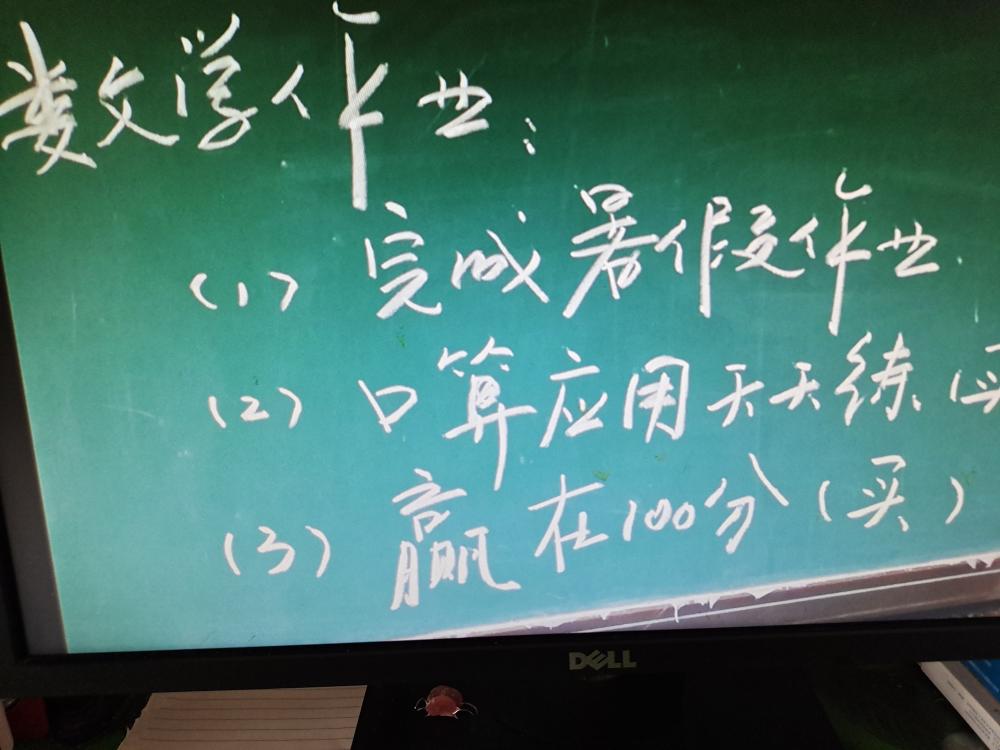 数学作业:
(1) 完成暑假作业
(2) 口算应用天天练 (买
(3) 赢在100分 (买)
DELL